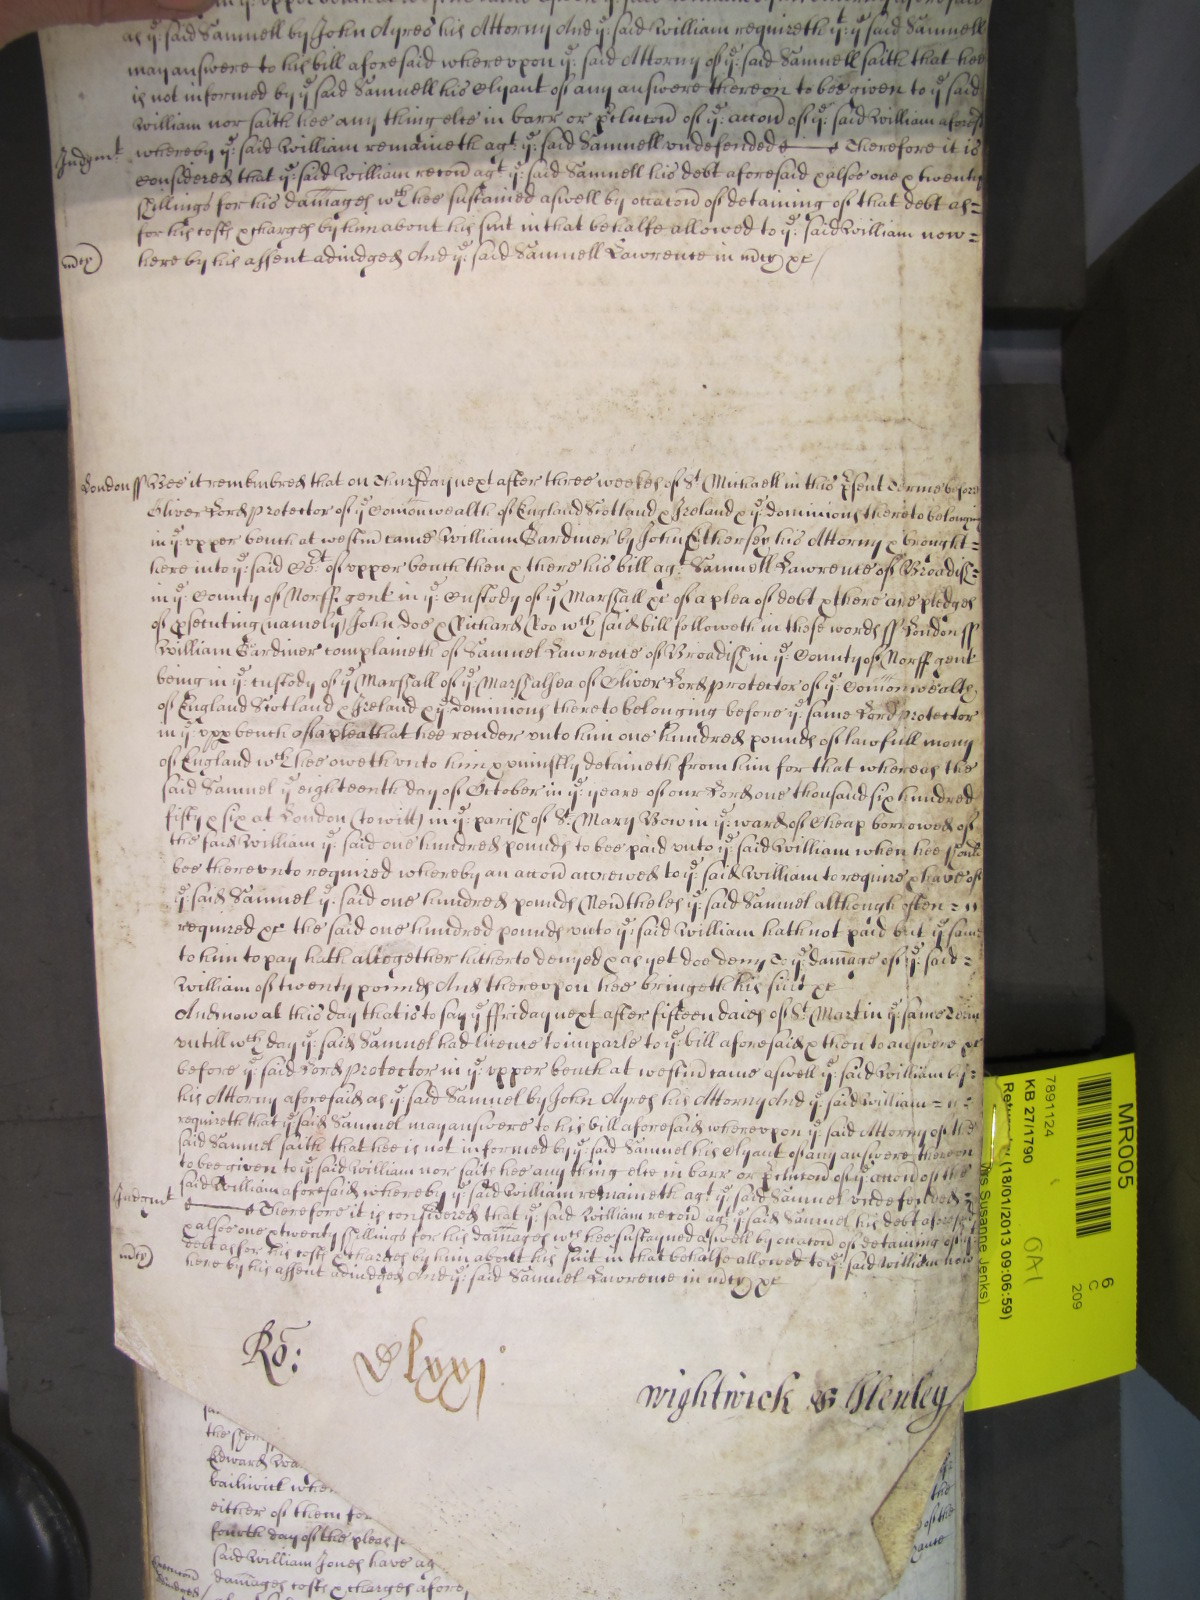 as ye: said Samuell by John Ayres his Attorny And ye: said William requireth yt ye: said Samuell
may answere to his bill aforesaid wherevpon ye: said Attorny of ye: said Samuell saith that hee
is not informed by ye said Samuell his Clyant of any answere thereon to bee given to ye said
William nor saith hee any thing else in barr or of ye: accon of ye: said William aforesd
Judgmt whereby ye: said William remaineth agt ye: said Samuell vndefended Therefore it is
considered that ye: said William recouer agt ye: said Samuell his debt aforesaid & alsoe one & twenty
shillings for his damages wch hee sustained aswell by occacon of detaining of that debt as=
for his costs & charges by him about his suit in that behalfe allowed to ye: said William now=
mcy) here by his assent adiudged And ye: said Samuell Lawrence in mcy &c/
London ss Bee it remembred that on Thursday next after three weekes of St Michaell in this psent Terme before
Oliver Lord Protector of ye Comonwealth of England Scotland & Ireland & ye: dominions thereto belonging
in ye: vpper bench at westmr came William Gardiner by John Ethersey his Attorny & brought=
here into ye: said Cort of vpper bench then & there his bill agt Samuell Lawrence of Broadish=
in ye: County of Norff gent in ye: Custody of ye Marshall &c of a plea of debt & there are pledges
of psecuting (namely) John doe & Richard Roo wch said bill followeth in those words ss London ss
William Gardiner complaineth of Samuel Lawrence of Broadish in ye: County of Norff gent
being in ye: custody of ye Marshall of ye Marshalsea of Oliver Lord Protector of ye: Comonwealth
of England Scotland & Ireland & ye: dominions thereto belonging before ye: same Lord Protector
in ye: vpp bench of a plea that hee render vnto him one hundred pounds of lawfull mony
of England wch hee oweth vnto him & vniustly detaineth from him for that whereas the
said Samuel ye eighteenth day of October in ye: yeare of our Lord one thousand six hundred
fifty & six at London (to witt) in ye: parish of St: Mary Bow in ye: ward of Cheap borrowed of
the said William ye: said one hundred pounds to bee paid vnto ye: said William when hee should
bee therevnto required whereby an accon accrewed to ye: said William to require & have of
ye: said Samuel ye: said one hundred pounds Neuertheles ye: said Samuel although often=
required &c the said one hundred pounds vnto ye: said William hath not paid but ye same
to him to pay hath altogether hitherto denyed & as yet doe deny To ye: damage of ye: said=
William of twenty pounds And therevpon hee bringeth his suit &c
And now at this day that is to say ye ffriday next after fifteen daies of St: Martin ye: same Term
vntill wch day ye: said Samuel had licence to imparle to ye: bill aforesaid & then to answere &c
before ye: said Lord Protector in ye: vpper bench at westmr came aswell ye: said William by=
his Attorny aforesaid as ye: said Samuel by John Ayres his Attorny And ye: said William=
requireth that ye said Samuel may answere to his bill aforesaid wherevpon ye: said Attorny of the
said Samuel saith that hee is not informed by ye: said Samuel his Clyant of any answere thereon
to bee given to ye: said William nor saith hee any thing else in barr or of ye: accon of the
said William aforesaid whereby ye: said William remaineth agt ye: said Samuel vndefended
Judgmt Therefore it is considered that ye: said William recouer agt ye: said Samuel his debt aforesd
& alsoe one & twenty shillings for his damages wch hee sustayned aswell by occacon of detaining of ye:
debt as for his costs & charges by him about his suit in that behalfe allowed to ye: said William now
mcy) here by his assent adiudged And ye: said Samuel Lawrence in mcy &c
Ro: Dlxxj
Wightwick & Henley
the
Edward
bailiwick
either of them for
fourth day of the pleas
said William Jones have ag
damages costs & charges afore
the
of the
cause
MR005
6
C
209
7891124
KB 27/1790
(18/01/2013 09:06:59)
Ms Susanne Jenks)